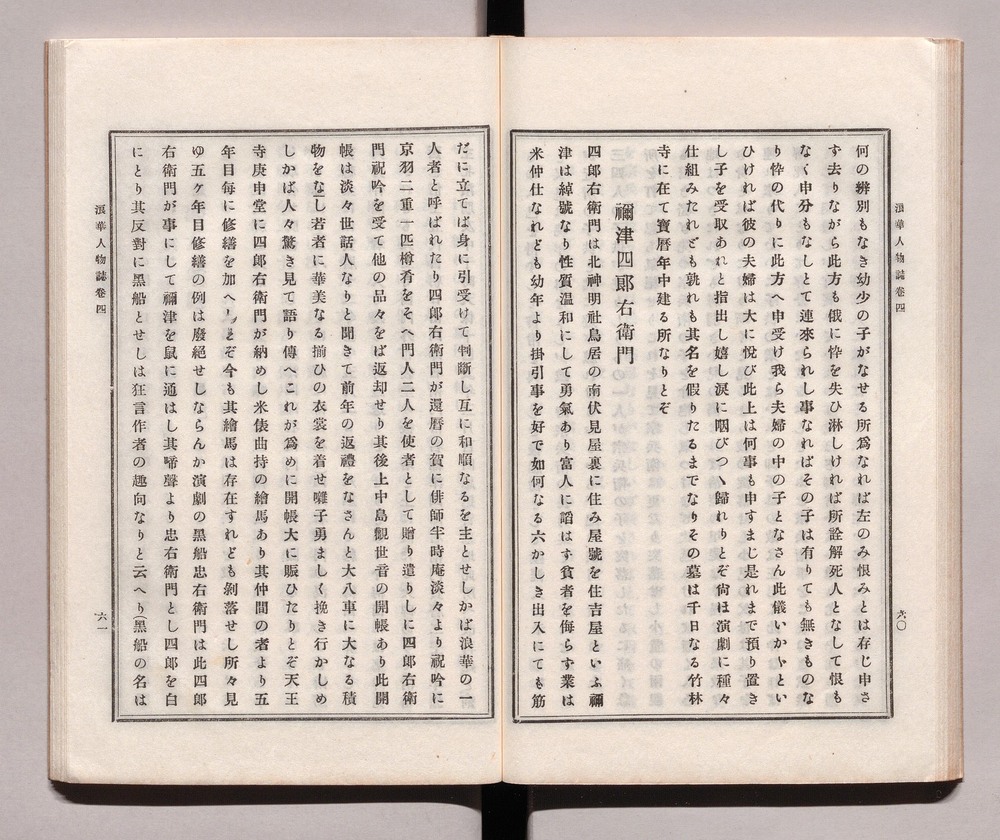 浪華人物誌卷四
六〇
何の辨別もなき幼少の子がなせる所爲なれば左のみ恨みとは存じ申さ
ず去りながら此方も俄に忰を失ひ淋しければ所詮解死人となしても恨も
なく申分もなしとて連來られし事なればその子は有りても無きものな
り忰の代りに此方へ申受け我ら夫婦の中の子となさん此儀いかゞとい
ひければ彼の夫婦は大に悅び此上は何事も申すまじ是れまで預り置き
し子を受取あれと指出し嬉し淚に咽びつゝ歸れりとぞ尙ほ演劇に種々
仕組みたれども孰れも其名を假りたるまでなりその墓は千日なる竹林
寺に在て寶曆年中建る所なりとぞ
禰津四郞右衞門
四郞右衞門は北神明社鳥居の南伏見屋裏に住み屋號を住吉屋といふ禰
津は綽號なり性質温和にして勇氣あり富人に諂はず貧者を侮らず業は
米仲仕なれども幼年より掛引事を好で如何なる六かしき出入にても筋
だに立てば身に引受けて判斷し互に和順なるを主とせしかば浪華の一
人者と呼ばれたり四郞右衞門が還曆の賀に俳師半時庵淡々より祝吟に
京羽二重一匹樽肴をそへ門人二人を使者として贈り遣りしに四郞右衞
門祝吟を受て他の品々をば返却せり其後上中島觀世音の開帳あり此開
帳は淡々世話人なりと聞きて前年の返禮をなさんと大八車に大なる積
物をなし若者に華美なる揃ひの衣裳を着せ囃子勇ましく挽き行かしめ
しかば人々驚き見て語り傳へこれが爲めに開帳大に賑ひたりとぞ天王
寺庚申堂に四郞右衞門が納めし米俵曲持の繪馬あり其仲間の者より五
年目每に修繕を加へしとぞ今も其繪馬は存在すれども剝落せし所々見
ゆ五ケ年目修繕の例は廢絕せしならんか演劇の黑船忠右衞門は此四郞
右衞門が事にして禰津を鼠に通はし其啼聲より忠右衞門とし四郞を白
にとり其反對に黑船とせしは狂言作者の趣向なりと云へり黑船の名は
浪華人物誌卷四
六一